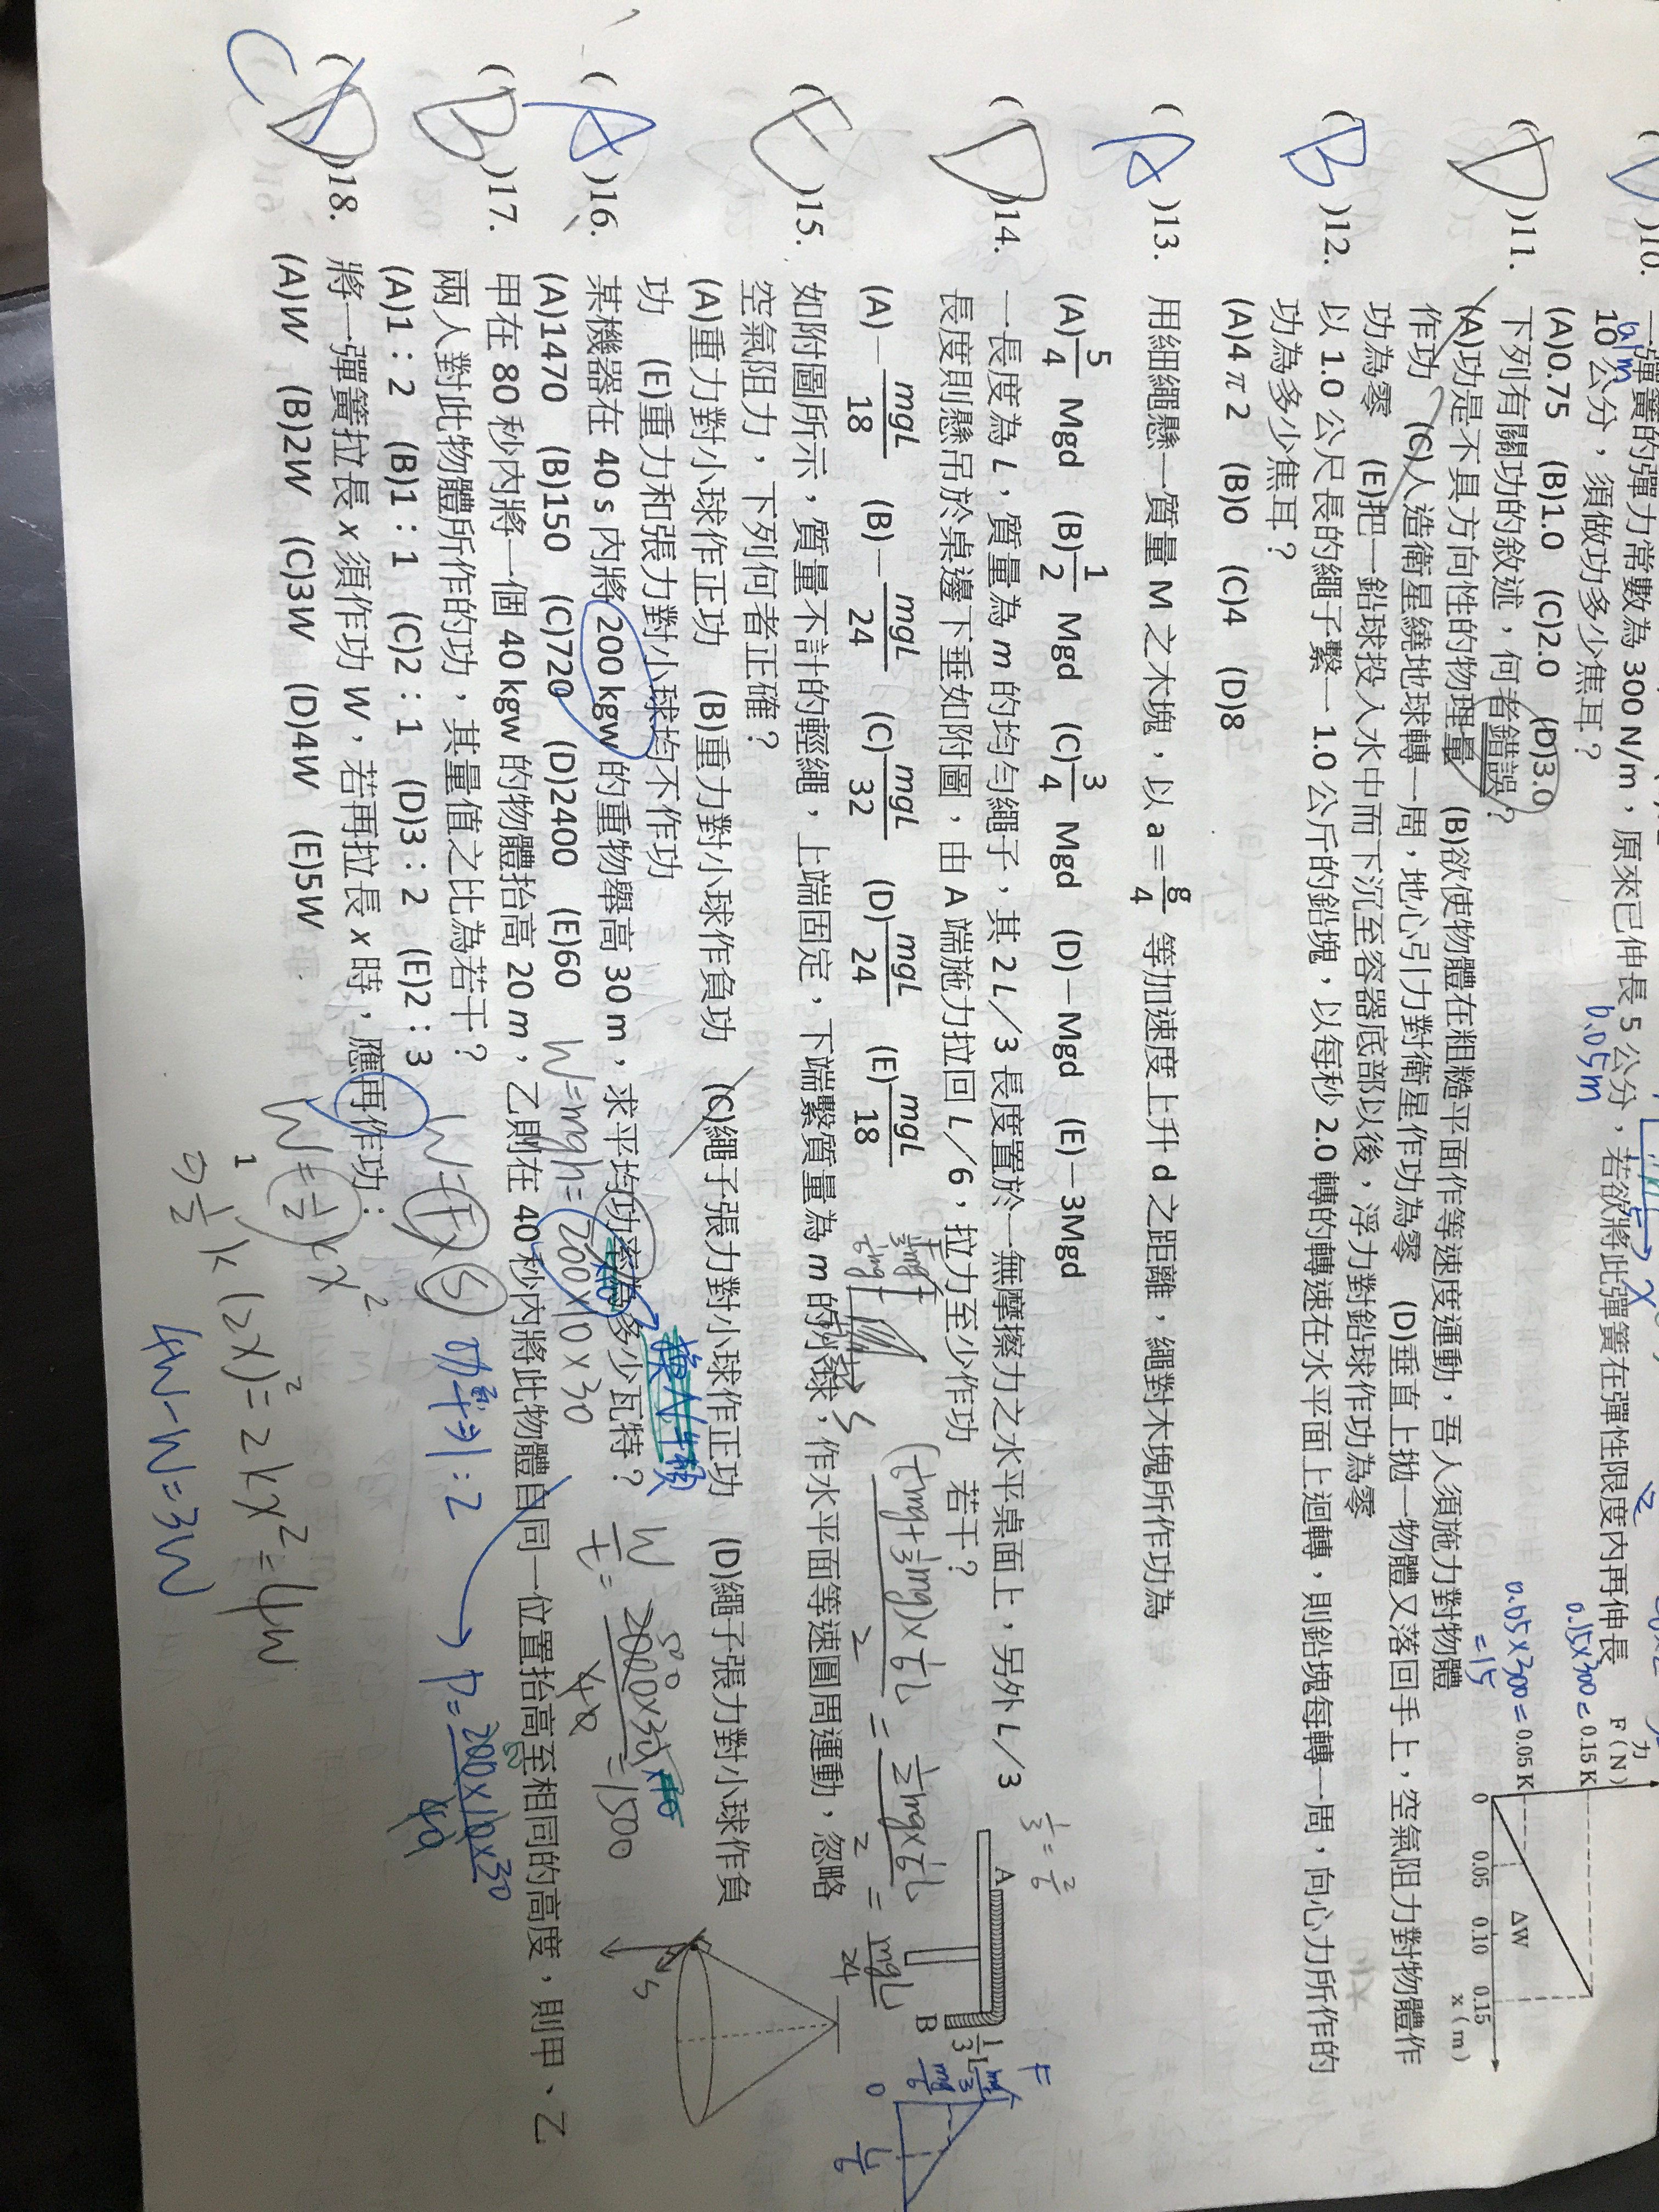 (D)10. 一彈簧的彈力常數為 300 N/m，原來已伸長 5 公分，若欲將此彈簧在彈性限度內再伸長
10 公分，須做功多少焦耳？
0.1m
0.05m
(A)0.75 (B)1.0 (C)2.0 (D)3.0
0.15×300=
0.05×300=
=15
力
F(N)
0.15 K
0.05 K
0 0.05 0.10 0.15
x(m)
ΔW
(D)11. 下列有關功的敘述，何者錯誤？
(A)功是不具方向性的物理量 (B)欲使物體在粗糙平面作等速度運動，吾人須施力對物體
作功 (C)人造衛星繞地球轉一周，地心引力對衛星作功為零 (D)垂直上拋一物體又落回手上，空氣阻力對物體作
功為零 (E)把一鉛球投入水中而下沉至容器底部以後，浮力對鉛球作功為零
(B)12. 以 1.0 公尺長的繩子繫一 1.0 公斤的鉛塊，以每秒 2.0 轉的轉速在水平面上迴轉，則鉛塊每轉一周，向心力所作的
功為多少焦耳？
(A)4π2 (B)0 (C)4 (D)8
(A)13. 用細繩懸一質量 M 之木塊，以 a=g/4 等加速度上升 d 之距離，繩對木塊所作功為
(A)5/4 Mgd (B)1/2 Mgd (C)3/4 Mgd (D)－Mgd (E)－3Mgd
(D)14. 一長度為 L，質量為 m 的均勻繩子，其 2 L／3 長度置於一無摩擦力之水平桌面上，另外 L／3
長度則懸吊於桌邊下垂如附圖，由 A 端施力拉回 L／6，拉力至少作功 若干？
(A)－mgL/18 (B)－mgL/24 (C)mgL/32 (D)mgL/24 (E)mgL/18
1/3=2/6
(1/6mg+1/3mg)×1/6L/2=1/2mg×1/6L/2=mgL/24
1/3mg
1/6mg
A
B
1/3L
F
mg/3
mg/6
0
L/6
(C)15. 如附圖所示，質量不計的輕繩，上端固定，下端繫質量為 m 的小球，作水平面等速圓周運動，忽略
空氣阻力，下列何者正確？
(A)重力對小球作正功 (B)重力對小球作負功 (C)繩子張力對小球作正功 (D)繩子張力對小球作負
功 (E)重力和張力對小球均不作功
S
(A)16. 某機器在 40 s 內將 200 kgw 的重物舉高 30 m，求平均功率為多少瓦特？
(A)1470 (B)150 (C)720 (D)2400 (E)60
W=mgh=200×10×30
W/t=2000×30/40=1500
500
P=200×10×30/40
(B)17. 甲在 80 秒內將一個 40 kgw 的物體抬高 20 m，乙則在 40 秒內將此物體自同一位置抬高至相同的高度，則甲、乙
兩人對此物體所作的功，其量值之比為若干？
(A)1：2 (B)1：1 (C)2：1 (D)3：2 (E)2：3
W=F×S
功率⇒1：2
(C)18. 將一彈簧拉長 x 須作功 W，若再拉長 x 時，應再作功：
(A)W (B)2W (C)3W (D)4W (E)5W
W=1/2kx²
⇒1/2k(2x)²=2kx²=4W
4W－W=3W